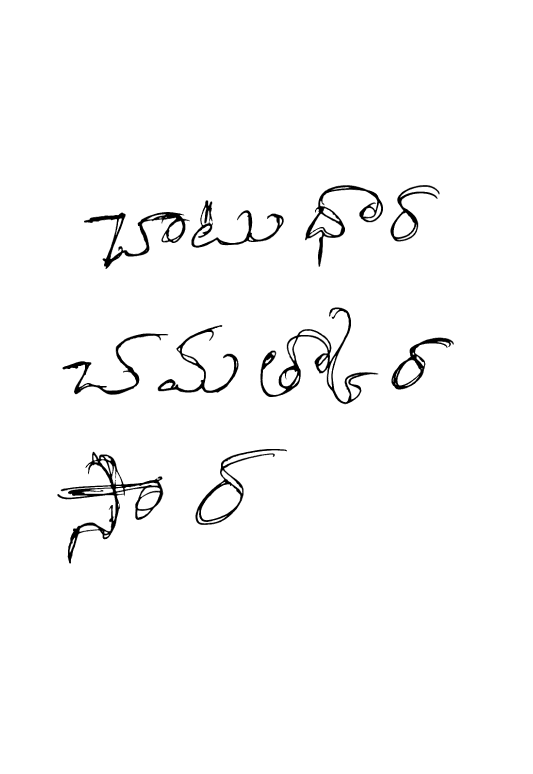 చాటు ధార
చమత్కార
సార